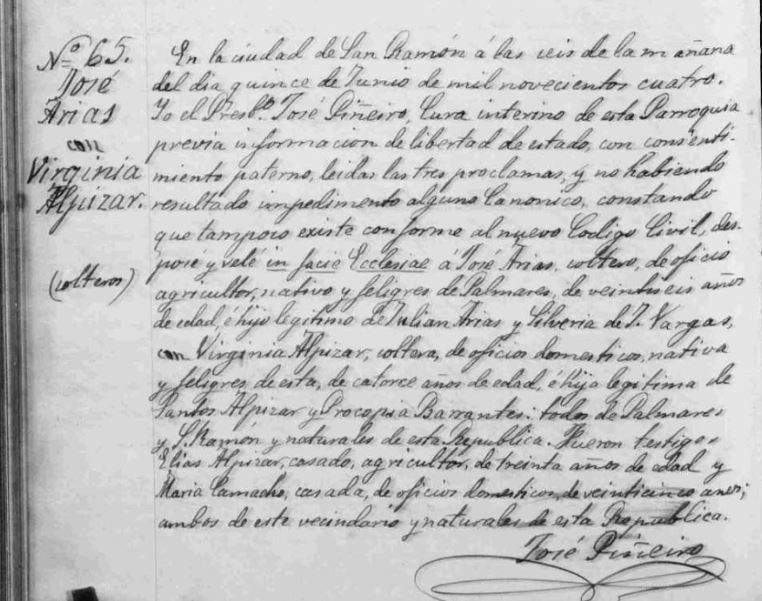 Nº 65.
José
Arias
con
Virginia
Alpizar.
(solteros)
En la ciudad de San Ramón á las seis de la mañana
del dia quince de Junio de mil novecientos cuatro.
Yo el Presbº José Piñeiro, Cura interino de esta Parroquia
previa informacion de libertad de estado, con consenti-
miento paterno, leidas las tres proclamas, y no habiendo
resultado impedimento alguno Canonico, constando
que tampoco existe conforme al nuevo Codigo Civil, des-
posé y velé in facie Ecclesiae á José Arias, soltero, de oficio
agricultor, nativo y feligres de Palmares, de veintiseis años
de edad, é hijo legitimo de Julian Arias y Silveria de J. Vargas,
con Virginia Alpizar, soltera, de oficios domesticos, nativa
y feligres de esta, de catorce años de edad, é hija legitima de
Santos Alpizar y Procopia Barrantes: todos de Palmares
y S. Ramón y naturales de esta Republica. Fueron testigos
Elias Alpizar, casado, agricultor, de treinta años de edad y
Maria Camacho, casada, de oficios domesticos, de veinticinco años;
ambos de este vecindario y naturales de esta Republica.
José Piñeiro